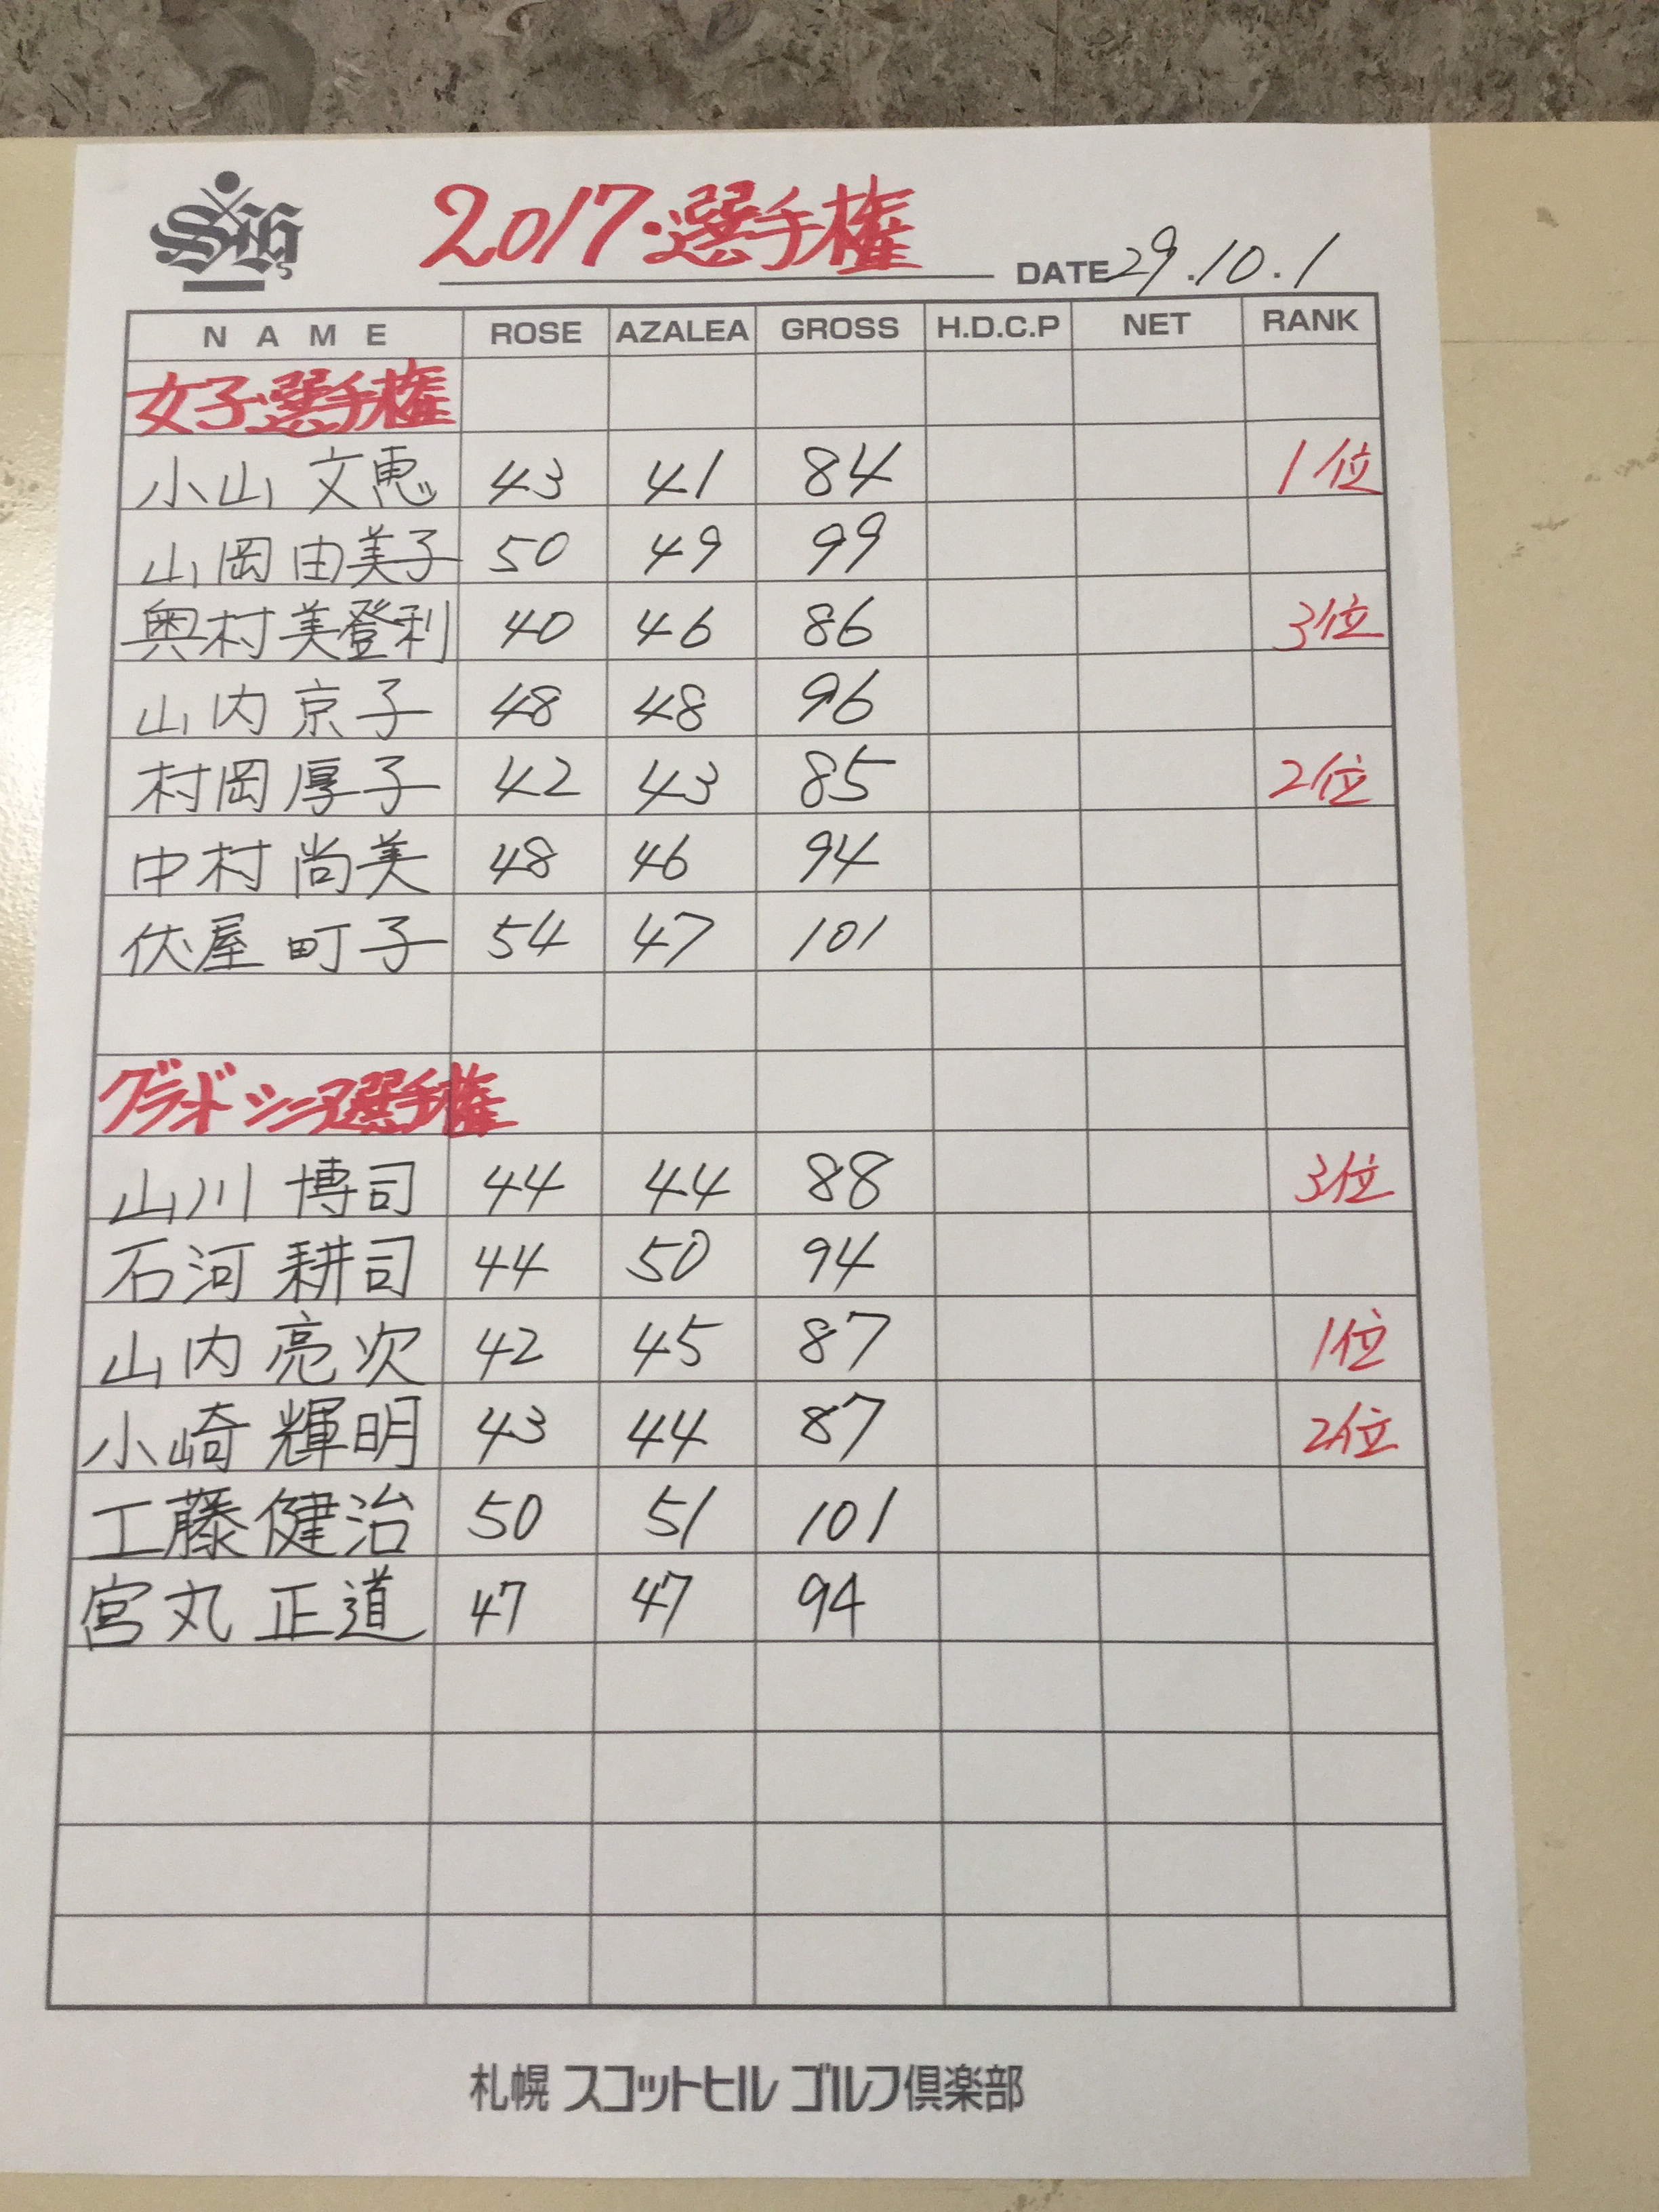 SHG
2017・選手権 DATE 29.10.1
NAME ROSE AZALEA GROSS H.D.C.P NET RANK
女子選手権
小山 文恵 43 41 84 1位
山岡 由美子 50 49 99
奥村 美登利 40 46 86 3位
山内 京子 48 48 96
村岡 厚子 42 43 85 2位
中村 尚美 48 46 94
伏屋 町子 54 47 101
グランドシニア選手権
山川 博司 44 44 88 3位
石河 耕司 44 50 94
山内 亮次 42 45 87 1位
小崎 輝明 43 44 87 2位
工藤 健治 50 51 101
宮丸 正道 47 47 94
札幌 スコットヒル ゴルフ倶楽部